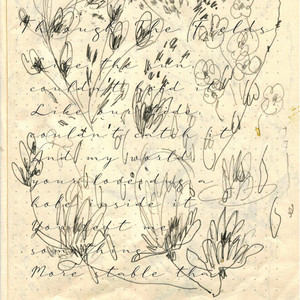 Through the fields
Like the sun,
couldn't hold it
Like our tide,
couldn't catch it
And my world
your love dug a
hole inside it
You left me
something
More stable than